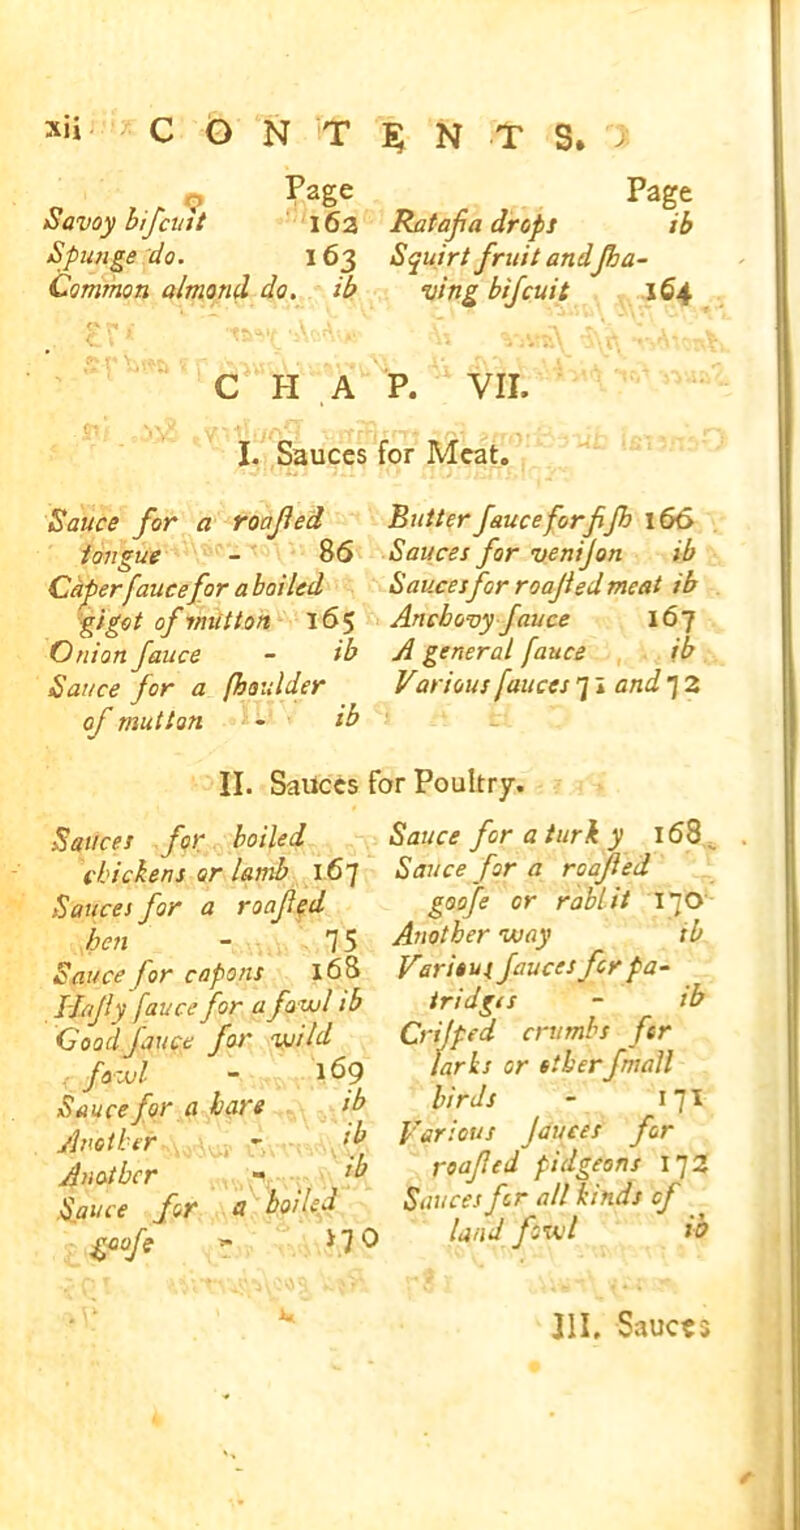 xii CONTENTS.
Page
Savoy biſcuit 162
Spunge do. 163
Common almond do. ib
Page
Ratafia drops ib
Squirt fruit and ſha-
ving biſcuit 164
CHAP. VII.
I. Sauces for Meat.
Sauce for a roaſted
tongue - 86
Caper ſauce for a boiled
gigot of mutton 165
Onion ſauce - ib
Sauce for a ſhoulder
of mutton - ib
Butter ſauce for fiſh 166
Sauces for veniſon ib
Sauces for roaſted meat ib
Anchovy ſauce 167
A general ſauce ib
Various ſauces 71 and 72
II. Sauces for Poultry.
Sauces for boiled
chickens or lamb 167
Sauces for a roaſted
hen - 75
Sauce for capons 168
Haſty ſauce for a fowl ib
Good ſauce for wild
fowl - 169
Sauce for a hare ib
Another - ib
Another - ib
Sauce for a boiled
gooſe - 170
Sauce for a turky 168
Sauce for a roaſted
gooſe or rabbit 170
Another way ib
Various ſauces for pa-
tridges - ib
Criſped crumbs for
larks or other ſmall
birds - 171
Various ſauces for
roaſted pidgeons 172
Sauces for all kinds of
land fowl ib
III. Sauces